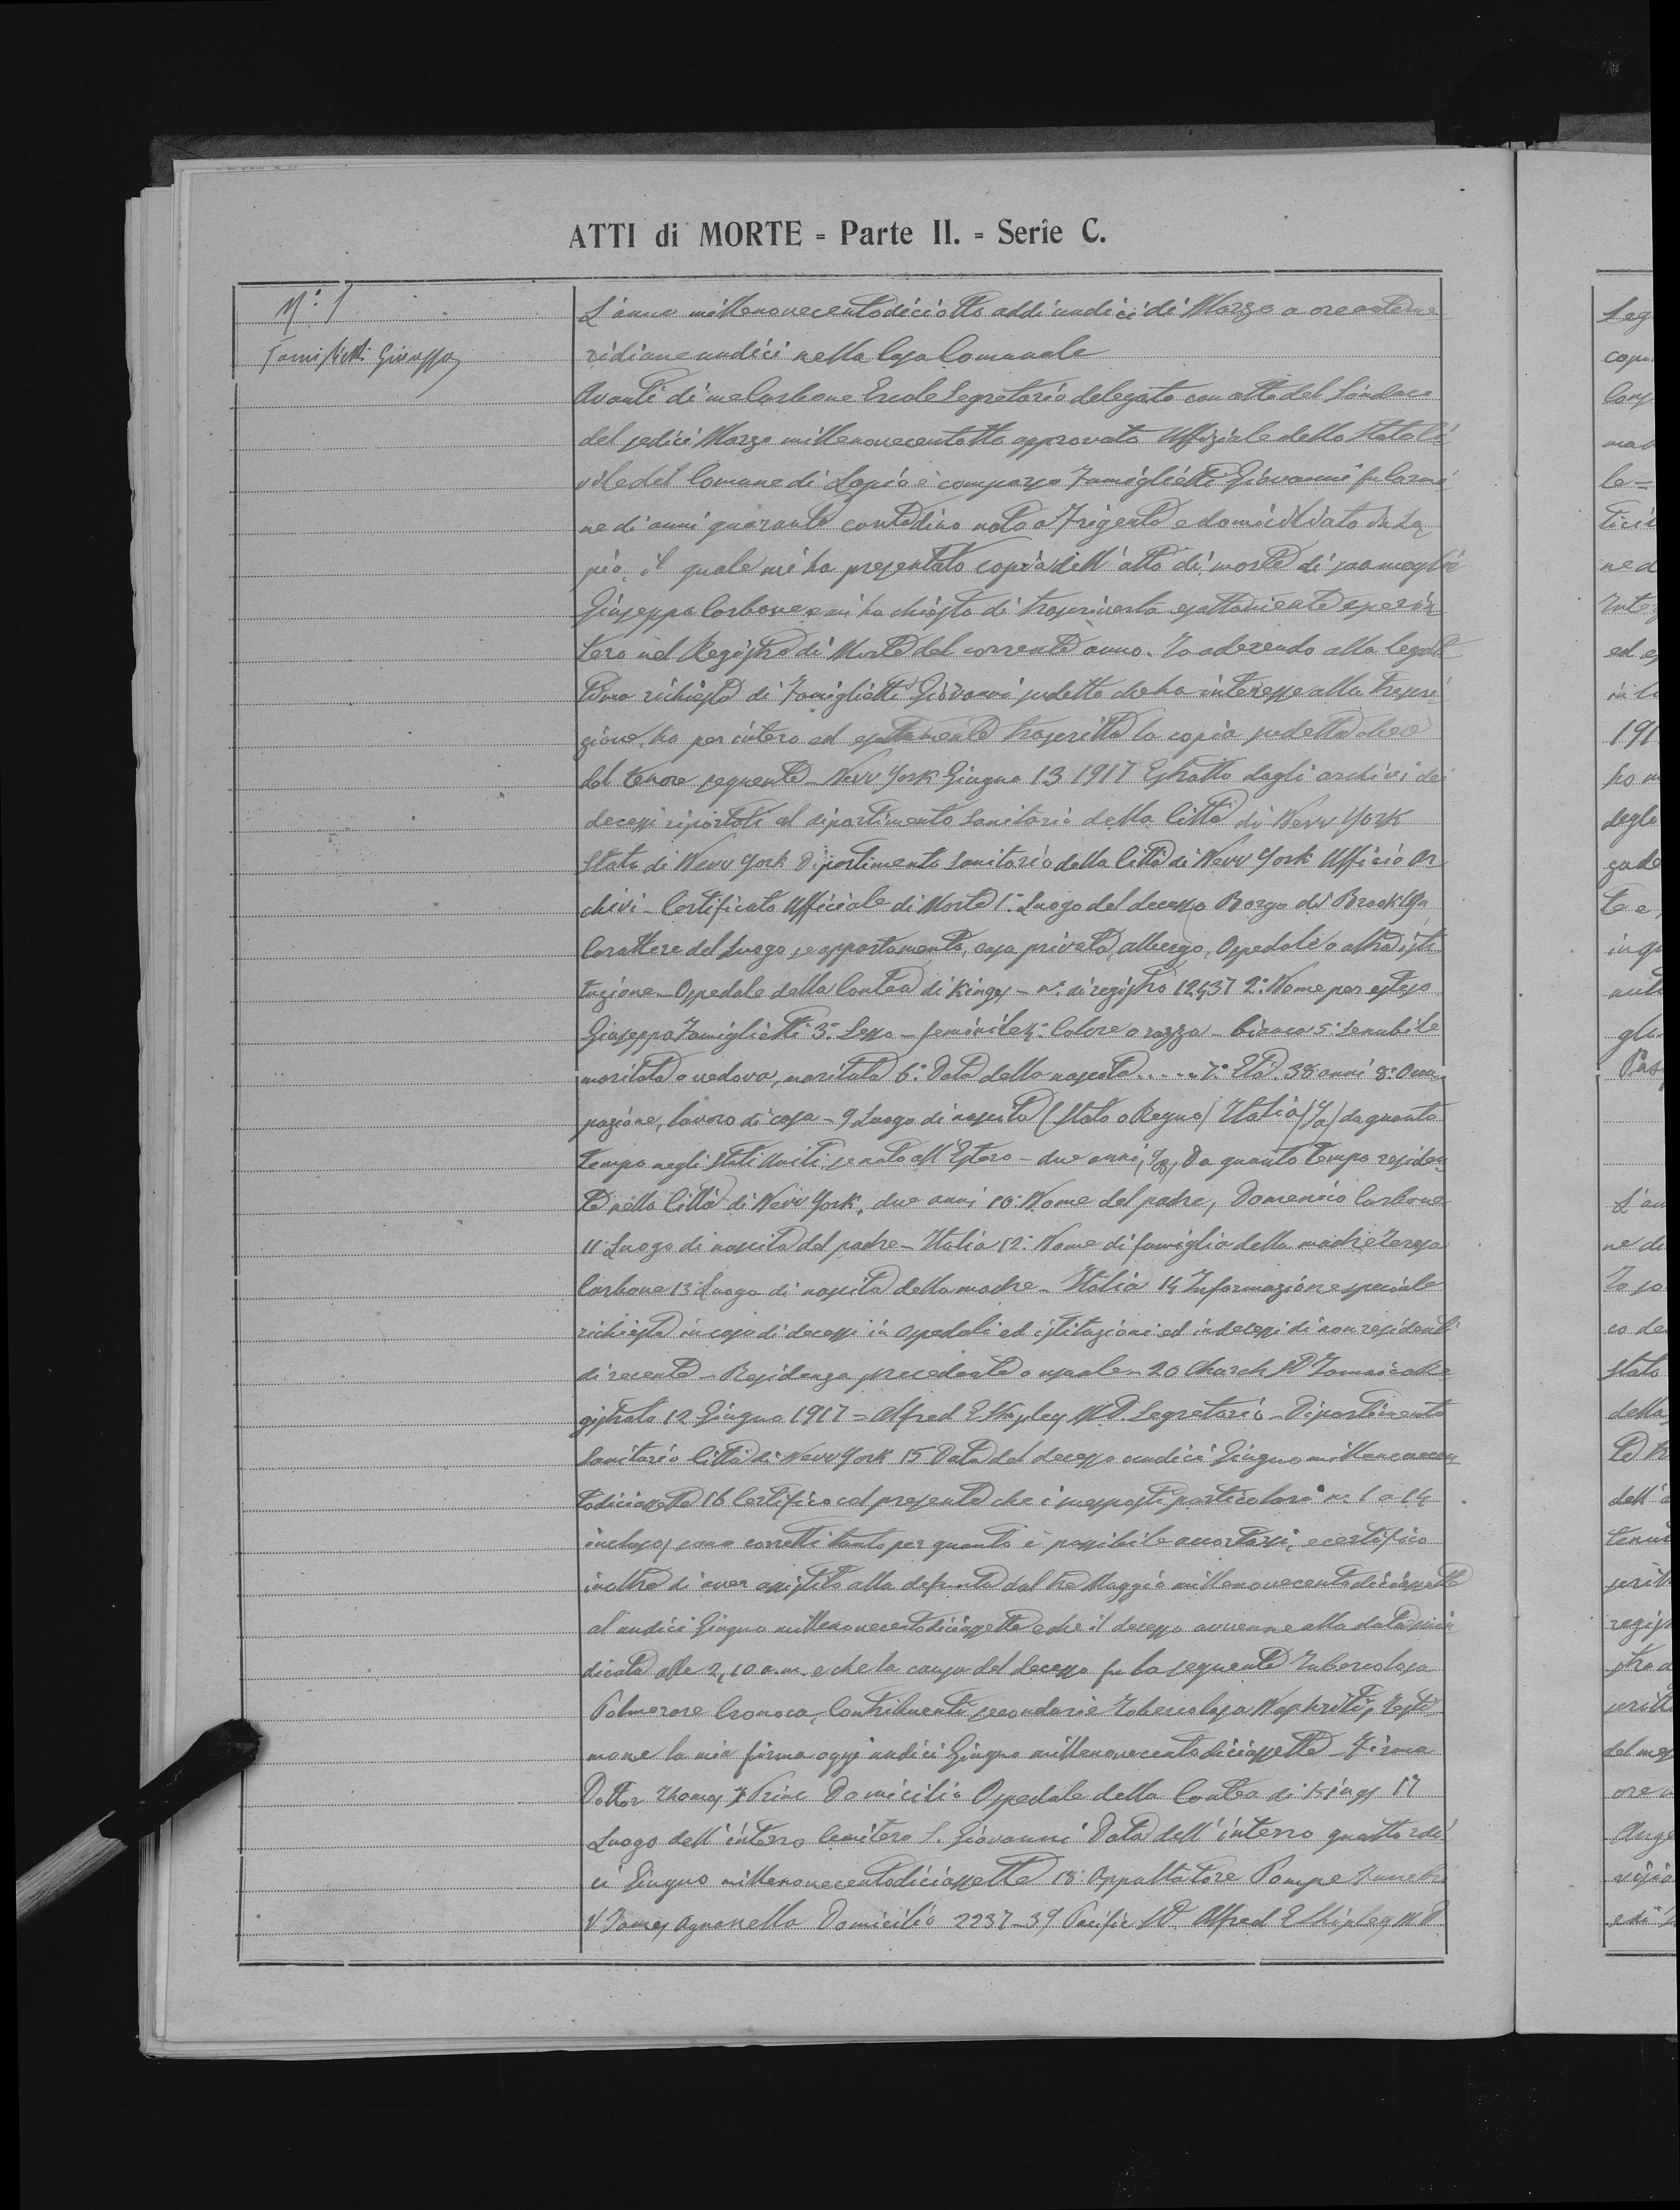 ATTI di MORTE = Parte II. = Serie C.
N.° 1
Famiglietti Giuseppa
L'anno millenovecentodiciotto addì undici di Marzo a ore anteme
ridiane undici nella Casa Comunale
Avanti di me Carbone Ercole Segretario delegato con atto del Sindaco
del sedici Marzo millenovecentotto approvato Uffiziale dello Stato Ci
vile del Comune di Lapio è comparso Famiglietti Giovanni fu Carmi
ne di anni quaranta contadino nato a Frigento e domiciliato in La
pio, il quale mi ha presentato copia dell'atto di morte di sua moglie
Giuseppa Carbone e mi ha chiesto di trascriverla esattamente e per in
tero nel Registro di Morte del corrente anno. Io aderendo alla legit
tima richiesta di Famiglietti Giovanni sudetto che ha interesse alla trascri
zione, ho per intero ed esattamente trascritta la copia sudetta che è
del tenore seguente - New York Giugno 13 1917 Estratto dagli archivi dei
decessi riportati al dipartimento Sanitario della Città di New York
Stato di New York Dipartimento Sanitario della Città di New York Ufficio Ar
chivi - Certificato Ufficiale di Morte 1° Luogo del decesso Borgo di Brooklyn
Carattere del luogo, se appartamento, casa privata, albergo, Ospedale o altra isti
tuzione - Ospedale della Contea di Kings - n.° di registro 12437 2° Nome per esteso
Giuseppa Famiglietti 3° Sesso - feminile 4° Colore o razza - bianca 5° Se nubile
maritata o vedova, maritata 6° Data della nascita ..... 7° Età. 38 anni 8° Occu
pazione, lavoro di casa - 9 Luogo di nascita (Stato o Regno) Italia (9a) da quanto
tempo negli Stati Uniti se nato all'Estero - due anni, 9B, Da quanto tempo residen
te nella Città di New York, due anni 10. Nome del padre, Domenico Carbone
11 Luogo di nascita del padre - Italia 12° Nome di famiglia della madre Teresa
Carbone 13 Luogo di nascita della madre - Italia 14 Informazione speciale
richiesta in caso di decessi in Ospedali ed istituzioni ed in decessi di non residenti
di recente - Residenza precedente o usuale - 20 Church St Jamaica Re
gistrato 12 Giugno 1917 = Alfred E Shipley M D. Segretario - Dipartimento
Sanitario Città di New York 15 Data del decesso undici Giugno millenovecen
todiciassette 16 Certifico col presente che i suesposti particolari n.° 1 a 14
inclusi, sono corretti tanto per quanto è possibile accertarsi, e certifico
inoltre di aver assistito alla defunta dal tre Maggio millenovecentodiciassette
al undici Giugno millenovecentodiciassette e che il decesso avvenne alla data su in
dicata alle 2,10 a.m. e che la causa del decesso fu la seguente Tubercolosa
Polmorare Cronoca, Contribuenti secondarie Tubercolosa Nephritis, Testi
mone la mia firma oggi undici Giugno millenovecentodiciassette Firma
Dottor Thomas Domicilio Ospedale della Contea di Kings 17
Luogo dell'interro Cemitero S. Giovanni Data dell'interro quattordi
ci Giugno millenovecentodiciassette 18° Appaltatore Pompe Funebri
V. James Agnanello Domicilio 2237-39 Pacific St Alfred E Shipley M D